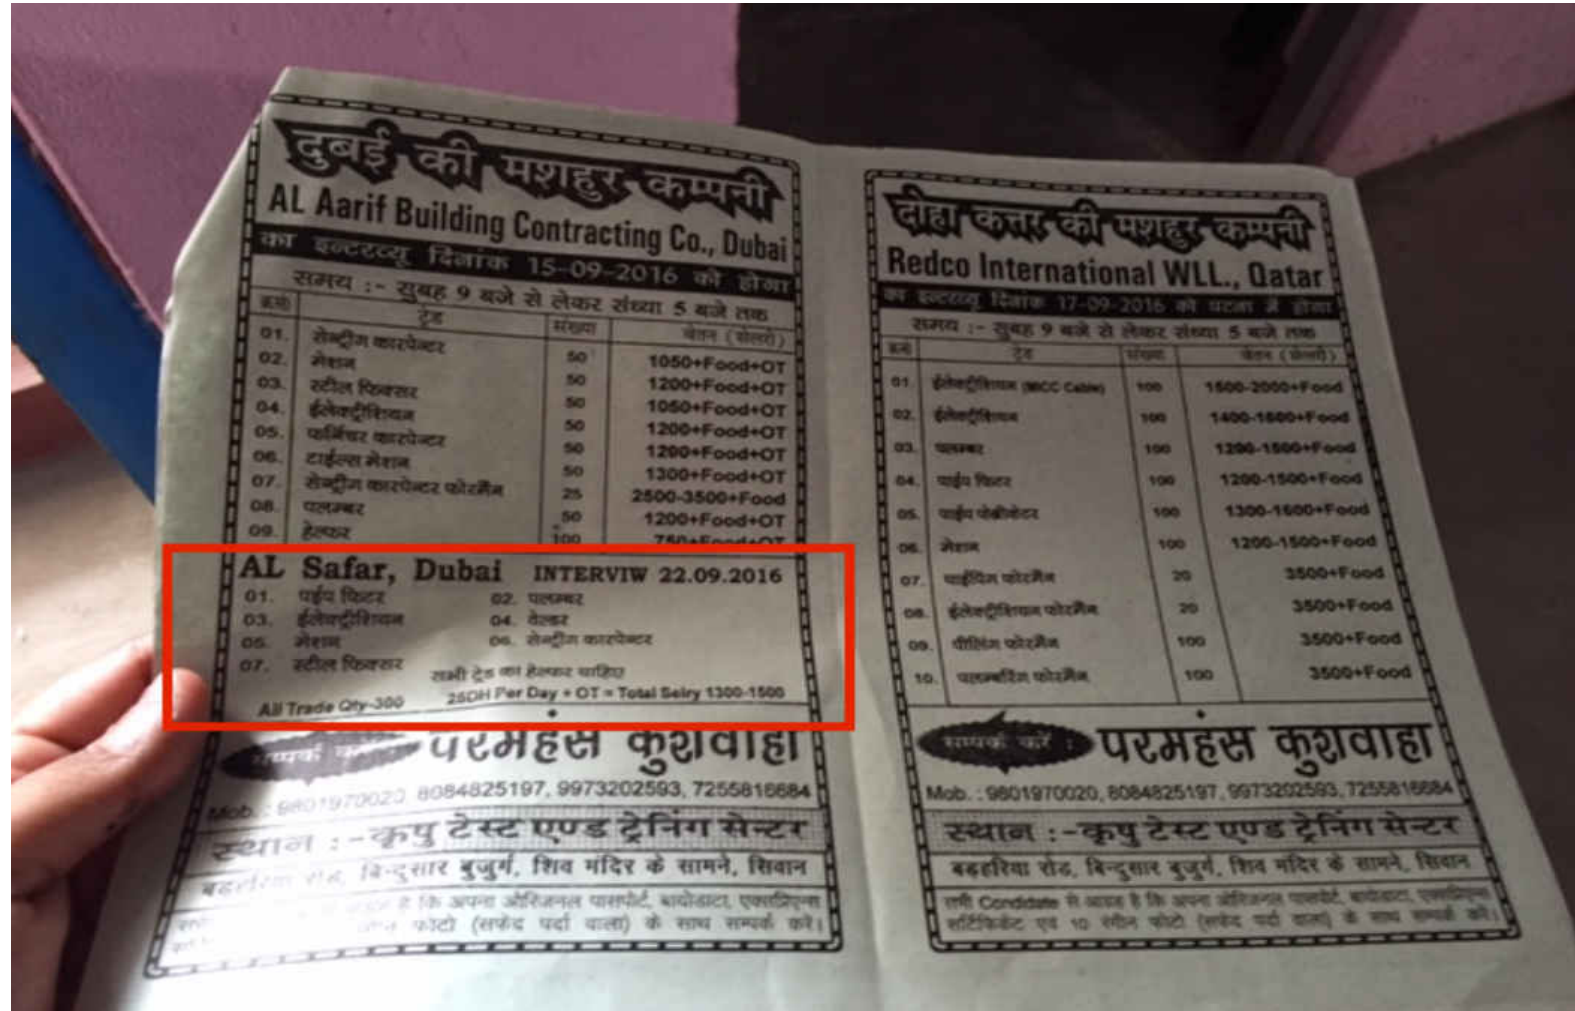 दुबई की मशहुर कम्पनी
AL Aarif Building Contracting Co., Dubai
का इन्टरव्यू दिनांक 15-09-2016 को होगा
समय :- सुबह 9 बजे से लेकर संध्या 5 बजे तक
क्र.सं० ट्रेड संख्या वेतन (सेलरी)
01. सेन्ट्रींग कारपेन्टर 50 1050+Food+OT
02. मेशन 50 1200+Food+OT
03. स्टील फिक्सर 50 1050+Food+OT
04. ईलेक्ट्रीशियन 50 1200+Food+OT
05. फर्निचर कारपेन्टर 50 1200+Food+OT
06. टाईल्स मेशन 50 1300+Food+OT
07. सेन्ट्रींग कारपेन्टर फोरमैन 25 2500-3500+Food
08. पलम्बर 50 1200+Food+OT
09. हेल्फर 100 750+Food+OT
AL Safar, Dubai INTERVIW 22.09.2016
01. पईप फिटर 02. पलम्बर
03. ईलेक्ट्रीशियन 04. वेल्डर
05. मेशन 06. सेन्ट्रींग कारपेन्टर
07. स्टील फिक्सर सभी ट्रेड का हेल्फर चाहिए
All Trade Qty-300 25DH Per Day + OT = Total Selry 1300-1500
सम्पर्क करें परमहंस कुशवाहा
Mob. : 9801970020, 8084825197, 9973202593, 7255816684
स्थान :- कृपु टेस्ट एण्ड ट्रेनिंग सेन्टर
बड़हरिया रोड, बिन्दुसार बुजुर्ग, शिव मंदिर के सामने, सिवान
है कि अपना ओरिजनल पासपोर्ट, बायोडाटा, एक्सप्रिएन्स
फोटो (सफेद पर्दा वाला) के साथ सम्पर्क करें।
दोहा कत्तर की मशहुर कम्पनी
Redco International WLL., Qatar
का इन्टरव्यू दिनांक 17-09-2016 को पटना में होगा
समय :- सुबह 9 बजे से लेकर संध्या 5 बजे तक
क्र.सं० ट्रेड संख्या वेतन (सेलरी)
01. ईलेक्ट्रीशियन (MICC Cable) 100 1500-2000+Food
02. ईलेक्ट्रीशियन 100 1400-1600+Food
03. पलम्बर 100 1200-1500+Food
04. पाईप फिटर 100 1200-1500+Food
05. पाईप फेब्रीकेटर 100 1300-1600+Food
06. मेशन 100 1200-1500+Food
07. पाईपिंग फोरमैन 20 3500+Food
08. ईलेक्ट्रीशियन फोरमैन 20 3500+Food
09. पीलिंग फोरमैन 100 3500+Food
10. पलम्बरिंग फोरमैन 100 3500+Food
सम्पर्क करें : परमहंस कुशवाहा
Mob. : 9801970020, 8084825197, 9973202593, 7255816684
स्थान :- कृपु टेस्ट एण्ड ट्रेनिंग सेन्टर
बड़हरिया रोड, बिन्दुसार बुजुर्ग, शिव मंदिर के सामने, सिवान
सभी Condidate से आग्रह है कि अपना ओरिजनल पासपोर्ट, बायोडाटा, एक्सप्रिएन्स
सर्टिफिकेट एवं 10 रंगीन फोटो (सफेद पर्दा वाला) के साथ सम्पर्क करें।